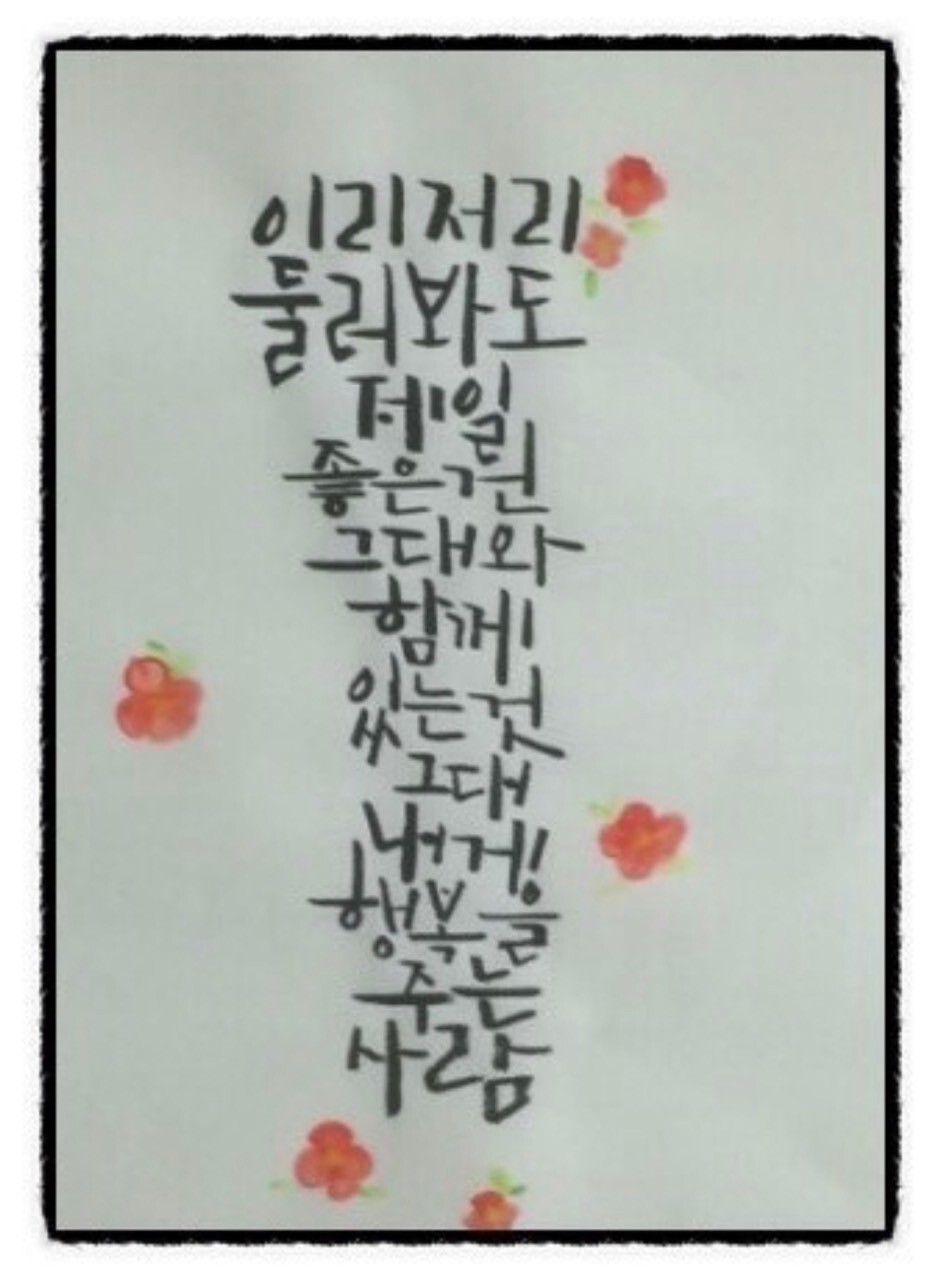 이리저리
둘러봐도
제일
좋은건
그대와
함께
있는것
그대
내게
행복을
주는
사람